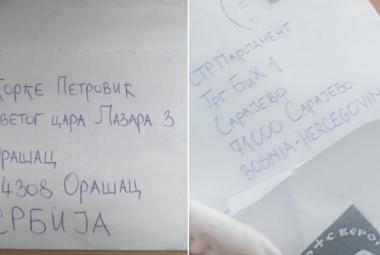 ЂОРЂЕ ПЕТРОВИЋ
СВЕТОГ ЦАРА ЛАЗАРА 3
ОРАШАЦ
34308 ОРАШАЦ
СРБИЈА
СТР ПАРЛАМЕНТ
ТРГ БИХ 1
САРАЈЕВО
71000 САРАЈЕВО
BOSNIA-HERCEGOVIN